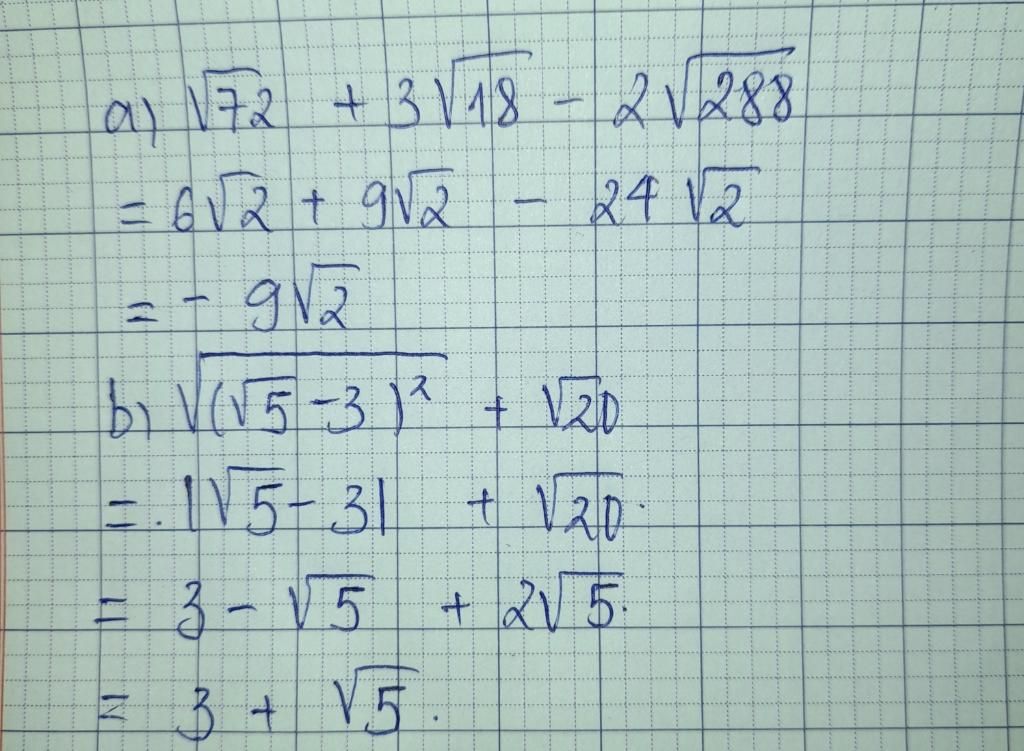 a) √72 + 3√18 - 2√288
= 6√2 + 9√2 - 24√2
= - 9√2
b) √(√5 - 3)² + √20
= |√5 - 3| + √20
= 3 - √5 + 2√5.
= 3 + √5.